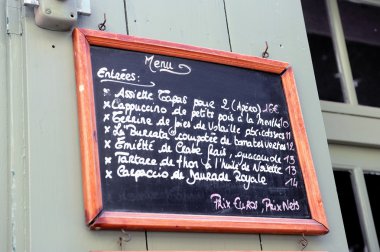 Menu
Entrées:
* Assiette Tapas pour 2 (Apéro) 16€
* Cappuccino de petits pois à la menthe 10
* Terrine de foies de Volaille abricots 11
* La Burrata compotée de tomates vertes 12
* Emietté de Crabe frais, guacamole 13
* Tartare de thon à l'huile de Noisette 13
* Carpaccio de Daurade Royale 14
Prix Euros, Prix Nets